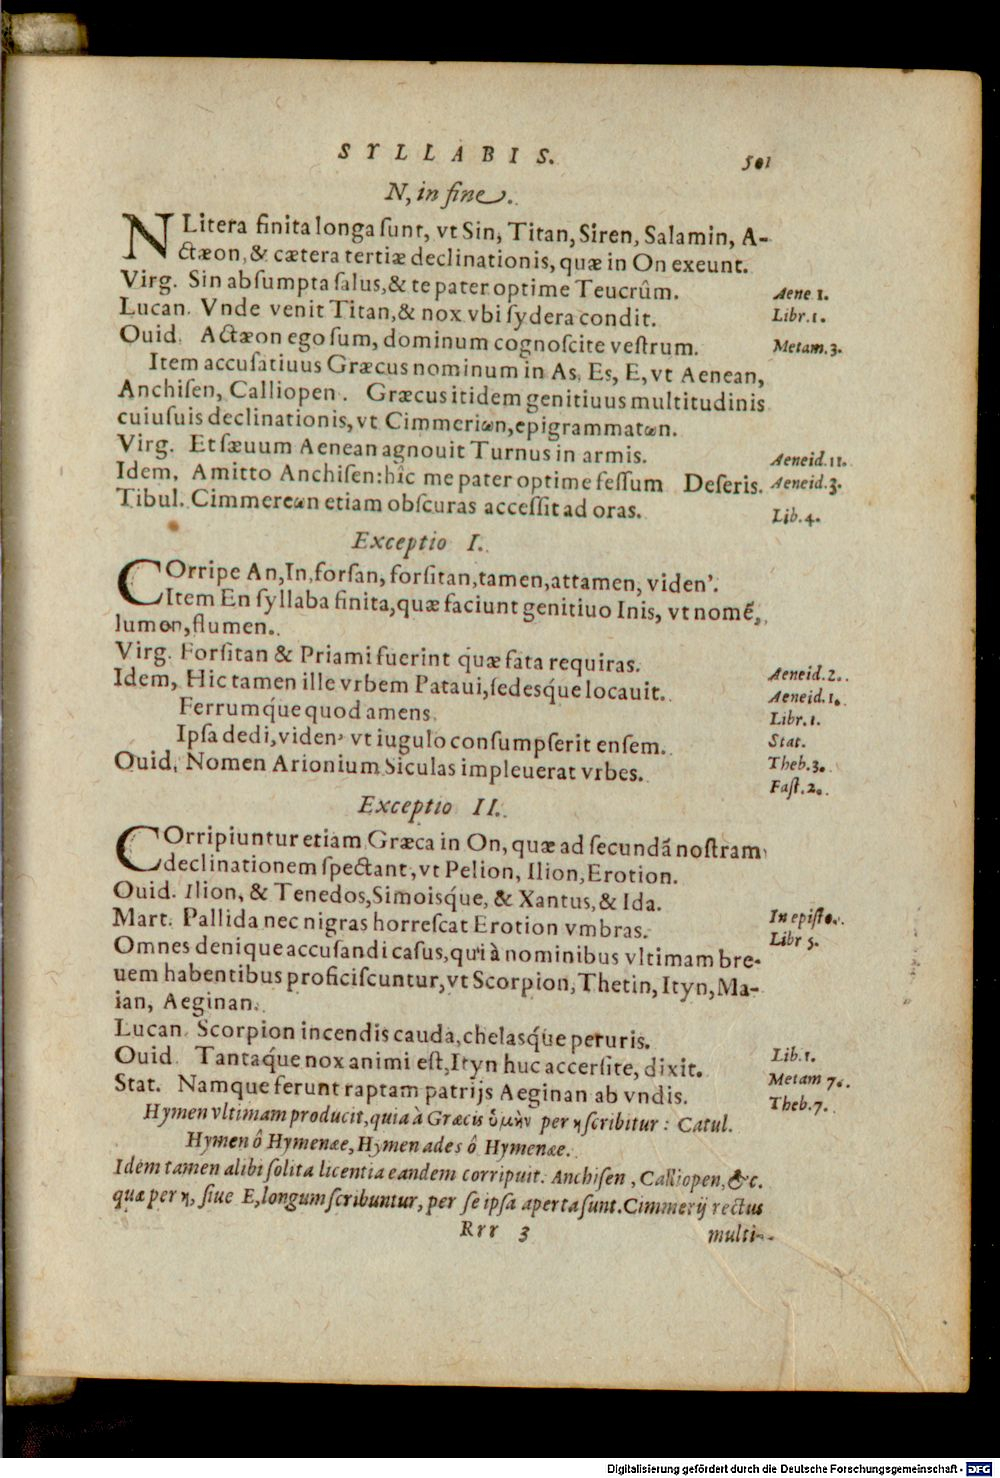 SYLLABIS. 501
N, in fine.
N Litera finita longa ſunt, vt Sin, Titan, Siren, Salamin, A-
ctæon, & cætera tertiæ declinationis, quæ in On exeunt.
Virg. Sin abſumpta ſalus, & te pater optime Teucrûm. Aene 1.
Lucan. Vnde venit Titan, & nox vbi ſydera condit. Libr. 1.
Ouid. Actæon ego ſum, dominum cognoſcite veſtrum. Metam. 3.
Item accuſatiuus Græcus nominum in As, Es, E, vt Aenean,
Anchiſen, Calliopen. Græcus itidem genitiuus multitudinis
cuiuſuis declinationis, vt Cimmeriωn, epigrammatωn.
Virg. Et ſæuum Aenean agnouit Turnus in armis. Aeneid. 11.
Idem, Amitto Anchiſen: hîc me pater optime feſſum Deſeris. Aeneid. 3.
Tibul. Cimmereωn etiam obſcuras acceſſit ad oras. Lib. 4.
Exceptio I.
COrripe An, In, forſan, forſitan, tamen, attamen, viden'.
Item En ſyllaba finita, quæ faciunt genitiuo Inis, vt nomē,
lumen, flumen.
Virg. Forſitan & Priami fuerint quæ fata requiras. Aeneid. 2.
Idem, Hic tamen ille vrbem Pataui, ſedesq́ue locauit. Aeneid. 1.
Ferrumq́ue quod amens Libr. 1.
Ipſa dedi, viden' vt iugulo conſumpſerit enſem. Stat.
Ouid. Nomen Arionium Siculas impleuerat vrbes. Theb. 3.
Faſt. 2.
Exceptio II.
COrripiuntur etiam Græca in On, quæ ad ſecundā noſtram
declinationem ſpectant, vt Pelion, Ilion, Erotion.
Ouid. Ilion, & Tenedos, Simoisq́ue, & Xantus, & Ida. In epiſto.
Mart. Pallida nec nigras horreſcat Erotion vmbras. Libr 5.
Omnes denique accuſandi caſus, qui à nominibus vltimam bre-
uem habentibus proficiſcuntur, vt Scorpion, Thetin, Ityn, Ma-
ian, Aeginan.
Lucan. Scorpion incendis cauda, chelasq́ue peruris. Lib. 1.
Ouid. Tantaq́ue nox animi eſt, Ityn huc accerſite, dixit. Metam 7.
Stat. Namque ferunt raptam patrijs Aeginan ab vndis. Theb. 7.
Hymen vltimam producit, quia à Græcis ὑμὴν per η ſcribitur: Catul.
Hymen ô Hymenæe, Hymen ades ô Hymenæe.
Idem tamen alibi ſolita licentia eandem corripuit. Anchiſen, Calliopen, &c.
quæ per η, ſiue E, longum ſcribuntur, per ſe ipſa aperta ſunt. Cimmerij rectus
Rrr 3 multi-
Digitalisierung gefördert durch die Deutsche Forschungsgemeinschaft - DFG